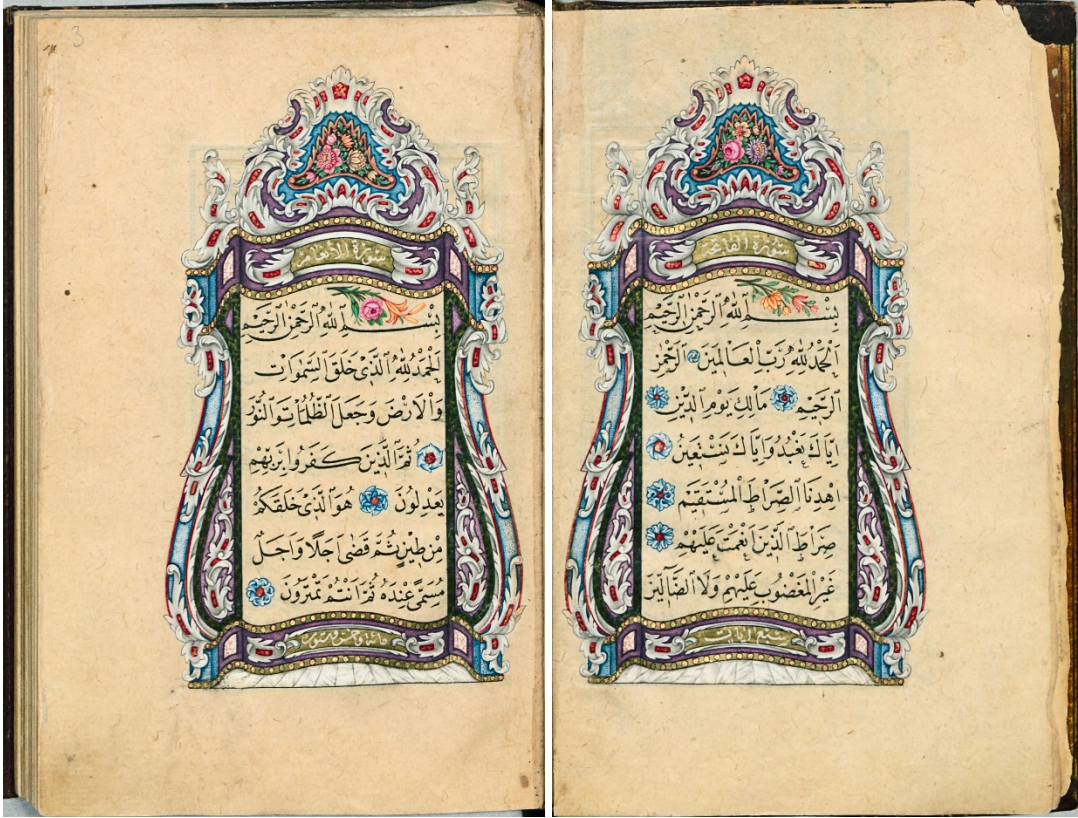 سُورَةُ الْفَاتِحَةِ
بِسْمِ اللّٰهِ الرَّحْمٰنِ الرَّحِيمِ
اَلْحَمْدُ لِلّٰهِ رَبِّ الْعَالَمِينَ اَلرَّحْمٰنِ
الرَّحِيمِ مَالِكِ يَوْمِ الدِّينِ
اِيَّاكَ نَعْبُدُ وَاِيَّاكَ نَسْتَعِينُ
اِهْدِنَا الصِّرَاطَ الْمُسْتَقِيمَ
صِرَاطَ الَّذِينَ اَنْعَمْتَ عَلَيْهِمْ
غَيْرِ الْمَغْضُوبِ عَلَيْهِمْ وَلَا الضَّالِّينَ
سبع ايات
3
سُورَةُ الْاَنْعَامِ
بِسْمِ اللّٰهِ الرَّحْمٰنِ الرَّحِيمِ
اَلْحَمْدُ لِلّٰهِ الَّذِي خَلَقَ السَّمٰوَاتِ
وَالْاَرْضَ وَجَعَلَ الظُّلُمَاتِ وَالنُّورَ
ثُمَّ الَّذِينَ كَفَرُوا بِرَبِّهِمْ
يَعْدِلُونَ هُوَ الَّذِي خَلَقَكُمْ
مِنْ طِينٍ ثُمَّ قَضٰى اَجَلًا وَاَجَلٌ
مُسَمًّى عِنْدَهُ ثُمَّ اَنْتُمْ تَمْتَرُونَ
مائة وخمس وستون